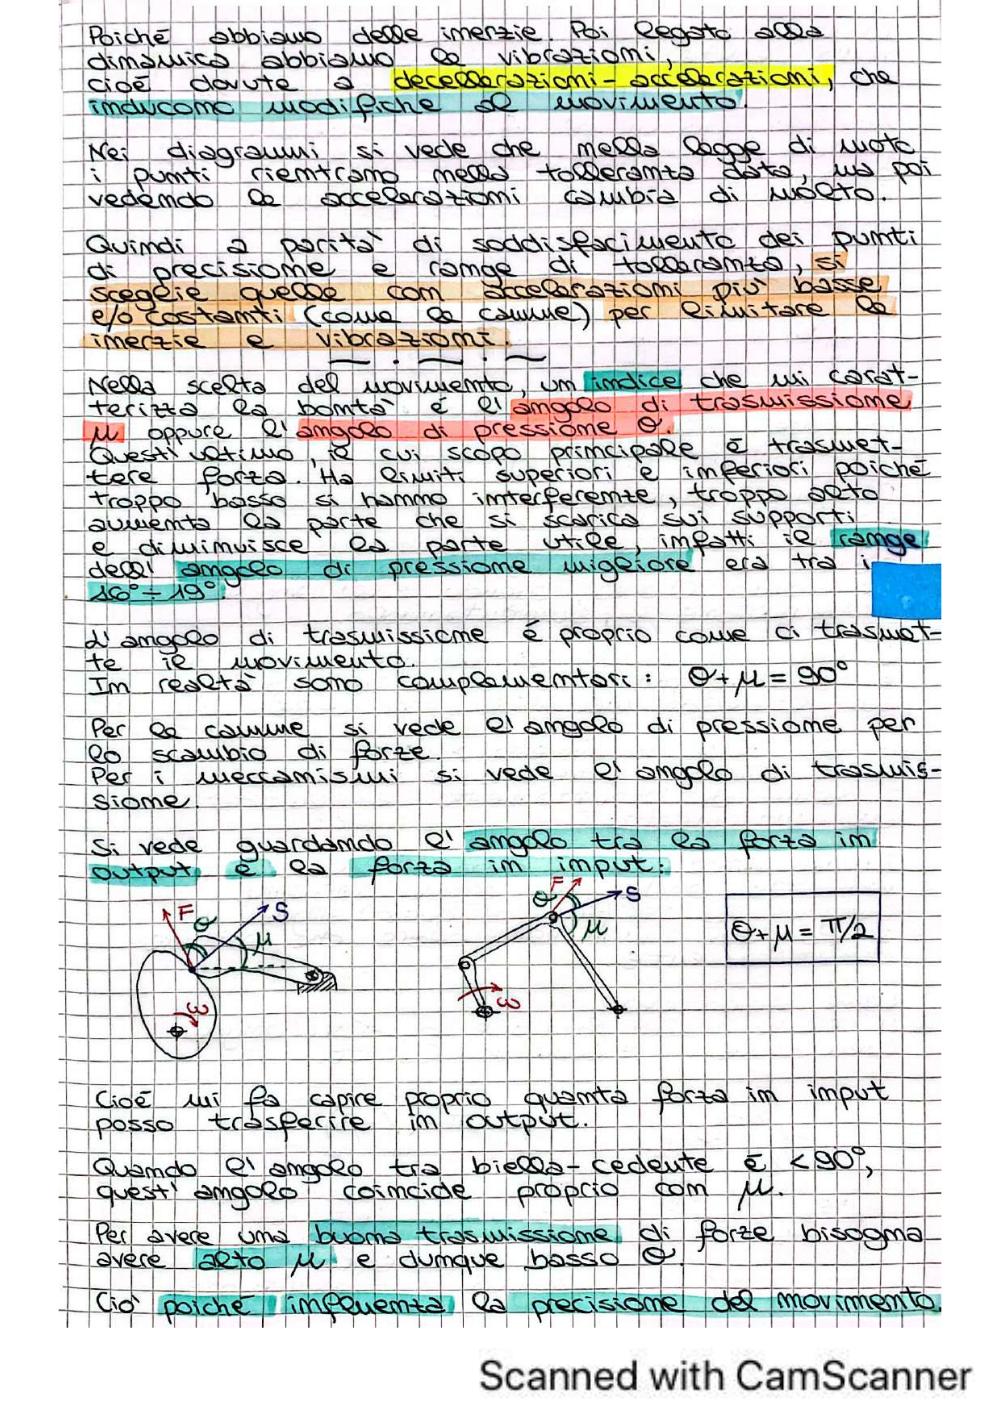 Poiché abbiamo delle inerzie. Poi legato alla
dinamica abbiamo le vibrazioni,
cioé dovute a decellerazioni-accelerazioni, che
inducono modifiche al movimento.
Nei diagrammi si vede che nella legge di moto
i punti rientrano nella tolleranza data, ma poi
vedendo le accelerazioni cambia di molto.
Quindi a parità di soddisfacimento dei punti
di precisione e range di tolleranza, si
sceglie quelle con accelerazioni più basse
e/o costanti (come le camme) per limitare le
inerzie e vibrazioni.
Nella scelta del movimento, un indice che mi carat-
terizza la bontà é l'angolo di trasmissione
μ oppure l'angolo di pressione θ.
Quest'ultimo, il cui scopo principale é trasmet-
tere forza. Ha limiti superiori e inferiori poiché
troppo basso si hanno interferenze, troppo alto
aumenta la parte che si scarica sui supporti
e diminuisce la parte utile, infatti il range
dell'angolo di pressione migliore era tra i
16° ÷ 19°.
L'angolo di trasmissione é proprio come ci trasmet-
te il movimento.
In realtà sono complementari: θ+μ = 90°
Per le camme si vede l'angolo di pressione per
lo scambio di forze.
Per i meccanismi si vede l'angolo di trasmis-
sione.
Si vede guardando l'angolo tra la forza in
output e la forza in input:
F θ S μ ω
F θ S μ ω
θ+μ = π/2
Cioé mi fa capire proprio quanta forza in input
posso trasferire in output.
Quando l'angolo tra biella-cedente é <90°,
quest'angolo coincide proprio con μ.
Per avere una buona trasmissione di forze bisogna
avere alto μ e dunque basso θ.
Ciò poiché influenza la precisione del movimento.
Scanned with CamScanner